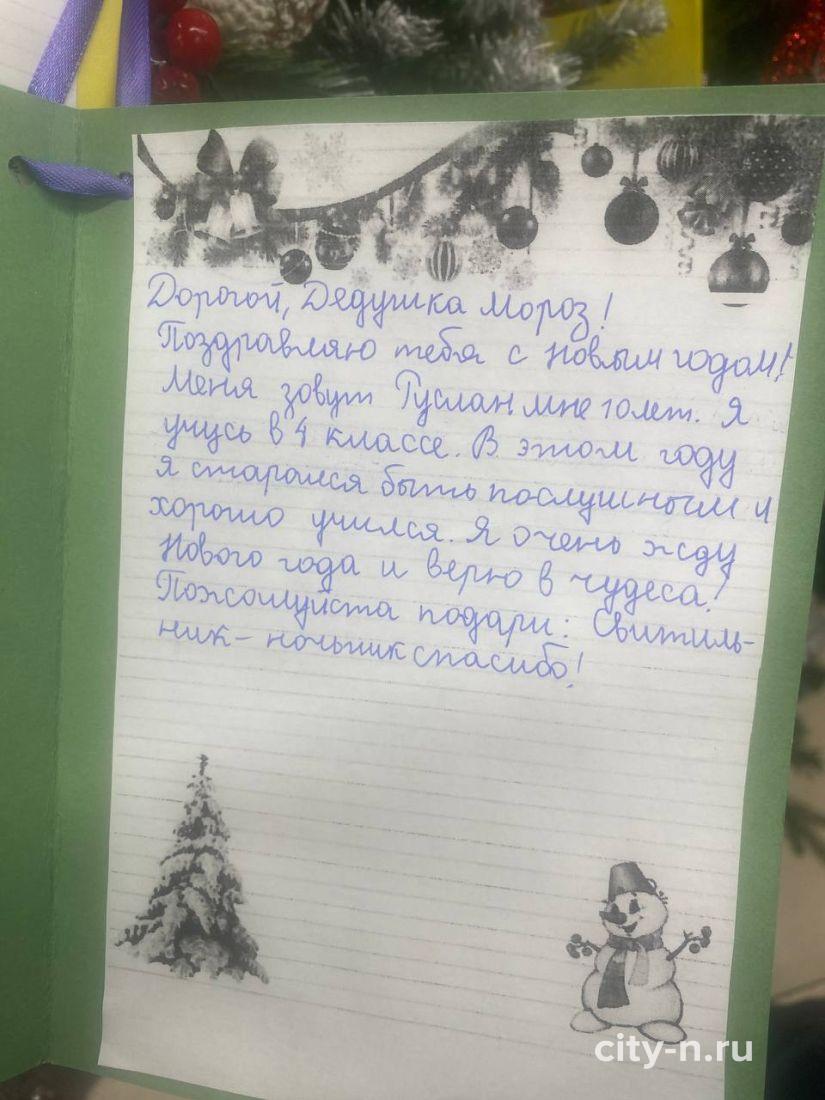 Дорогой, Дедушка Мороз!
Поздравляю тебя с Новым годом!
Меня зовут Руслан мне 10 лет. Я
учусь в 4 классе. В этом году
я старался быть послушным и
хорошо учился. Я очень жду
Нового года и верю в чудеса!
Пожалуйста подари: Свитиль-
ник - ночьник спасибо!
city-n.ru